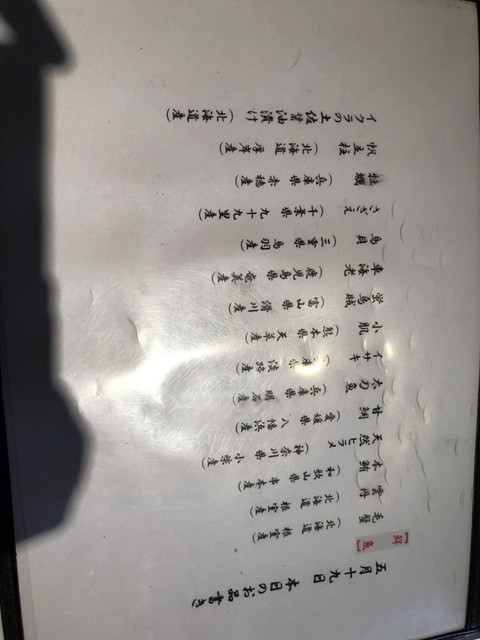 五月十九日 本日のお品書き
【鮮魚】
毛蟹 (北海道 根室産)
雲丹 (北海道 根室産)
本鮪 (和歌山県 串本産)
天然ヒラメ (神奈川県 小柴産)
甘鯛 (愛媛県 八幡浜産)
太刀魚 (兵庫県 明石産)
イサキ (兵庫県 淡路産)
小肌 (熊本県 天草産)
螢烏賊 (富山県 滑川産)
車海老 (鹿児島県 奄美産)
鳥貝 (三重県 鳥羽産)
さざえ (千葉県 九十九里産)
牡蠣 (兵庫県 赤穂産)
帆立柱 (北海道 厚岸産)
イクラの土佐醤油漬け (北海道産)